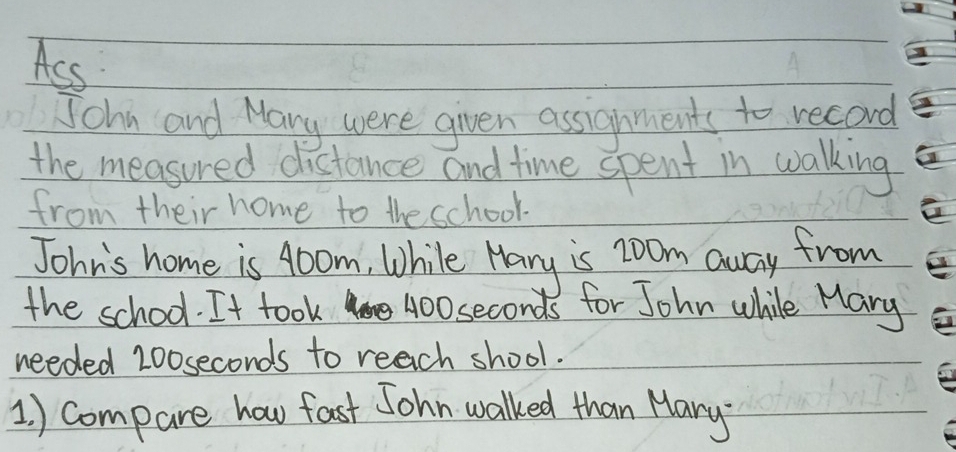 Ass.
John and Mary were given assignments to record
the measured distance and time spent in walking
from their home to the school.
John's home is 400m, While Mary is 200m away from
the school. It took 400seconds for John while Mary
needed 200seconds to reach shool.
1.) Compare how fast John walked than Mary.